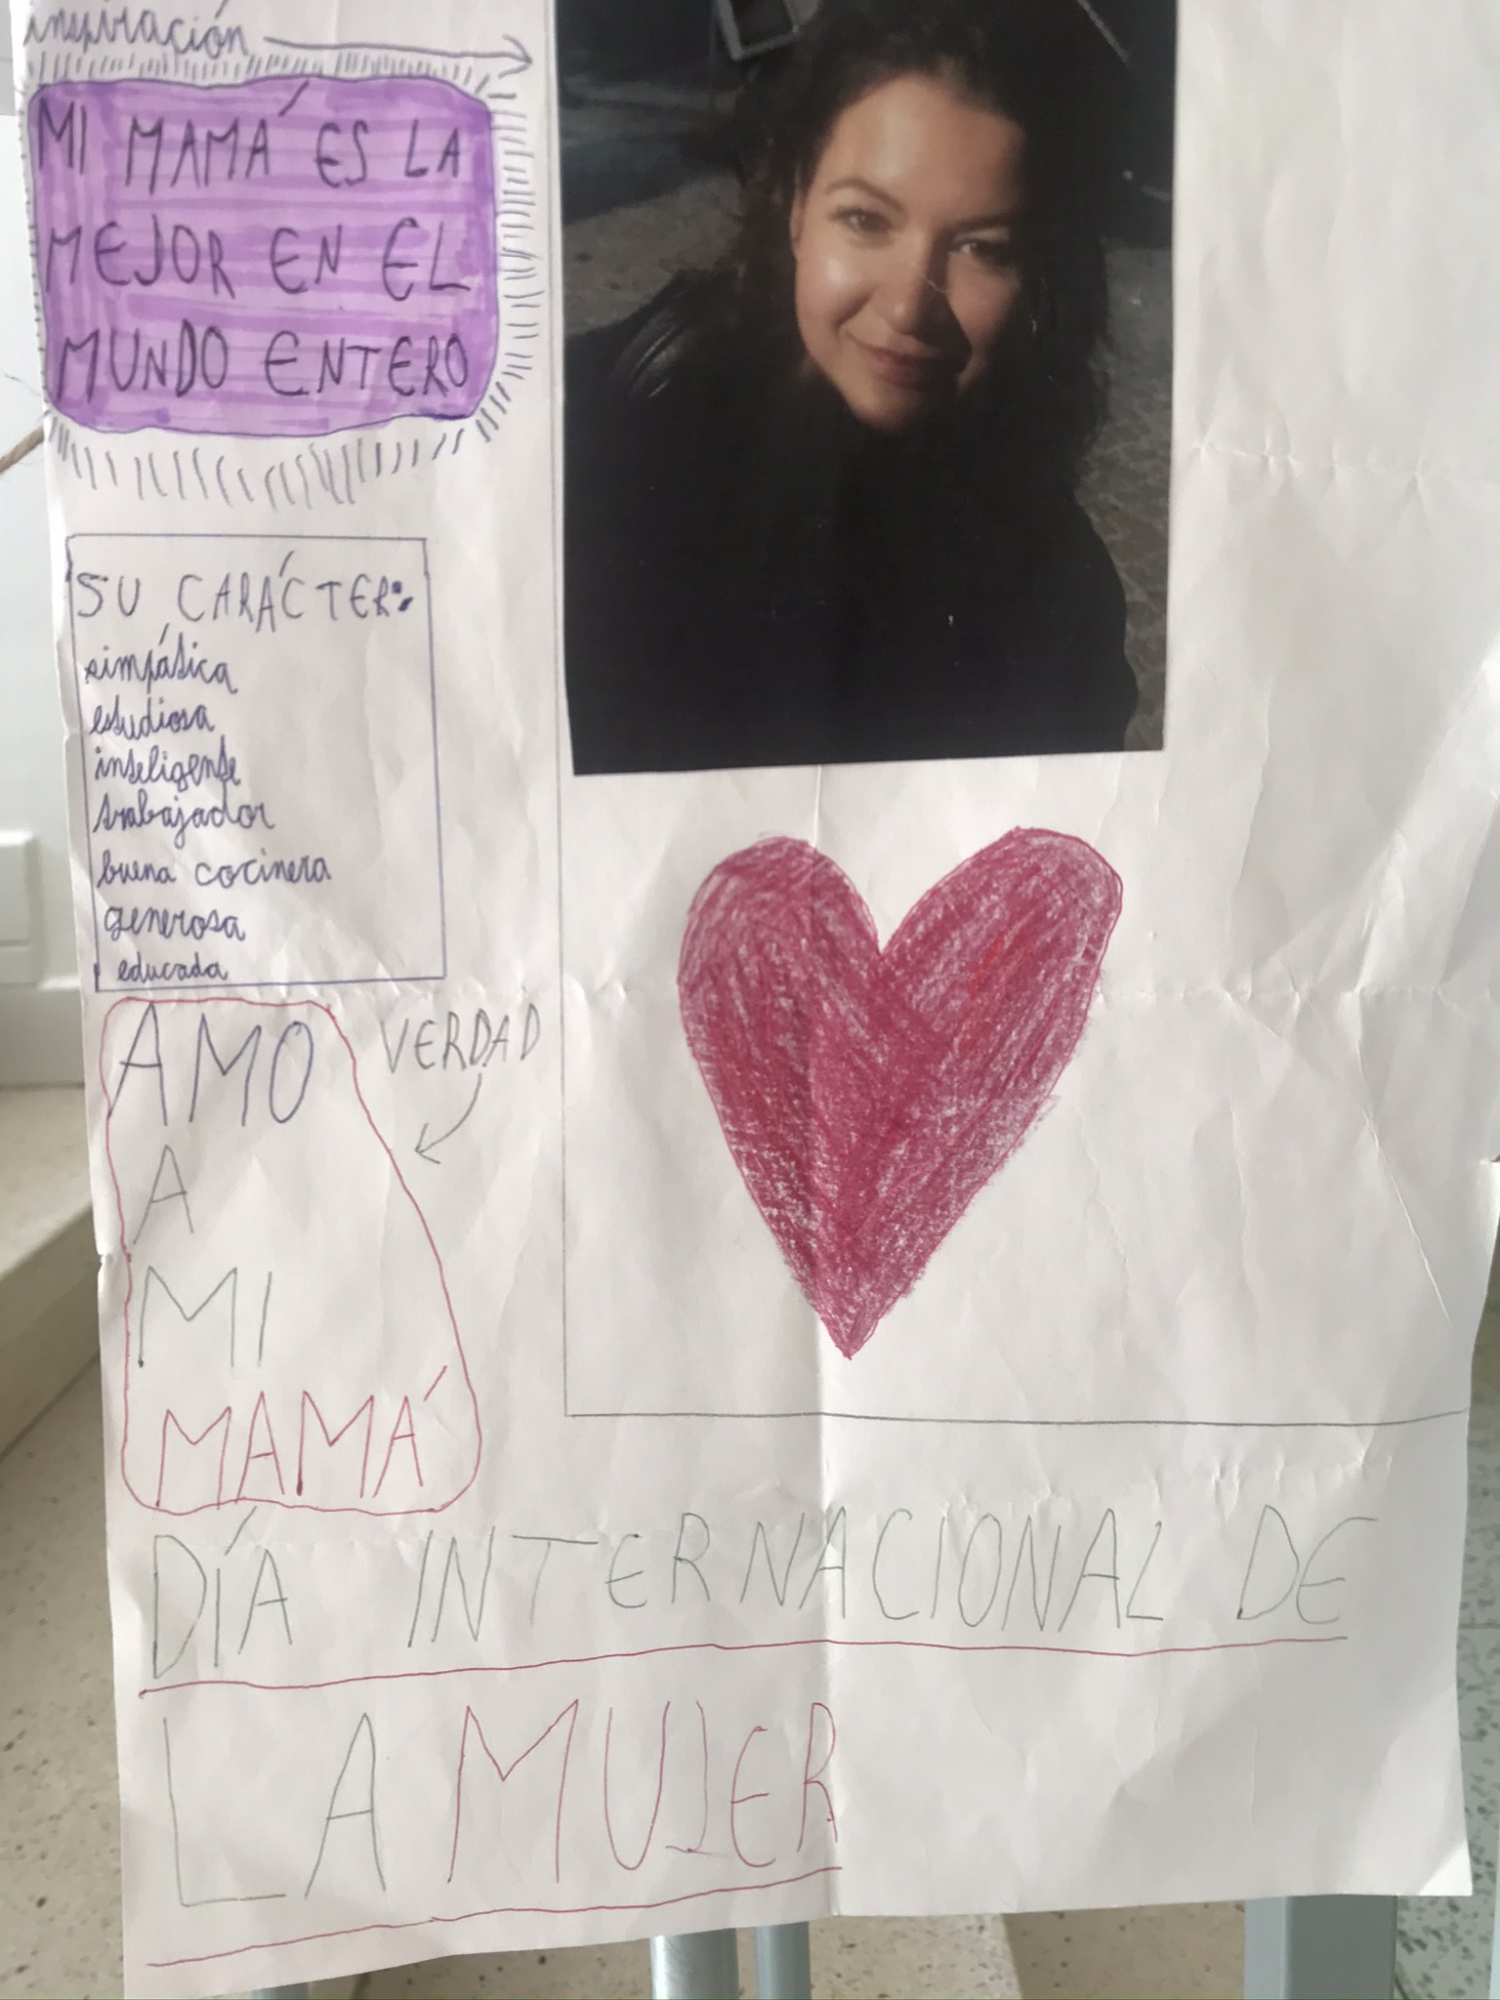 inspiración
MI MAMÁ ES LA
MEJOR EN EL
MUNDO ENTERO
SU CARÁCTER:
simpática
estudiosa
inteligente
trabajador
buena cocinera
generosa
educada
AMO
A
MI
MAMÁ
VERDAD
DÍA INTERNACIONAL DE
LA MUJER